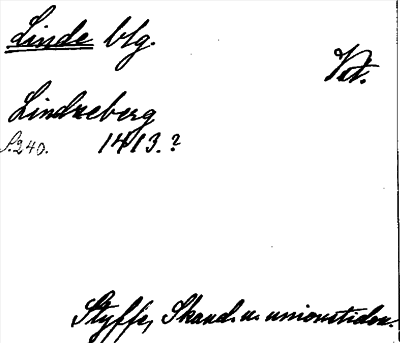 Linde blg.
Vst.
Lindneberg
S. 240. 1413.?
Styffe, Skand. u. unionstiden.